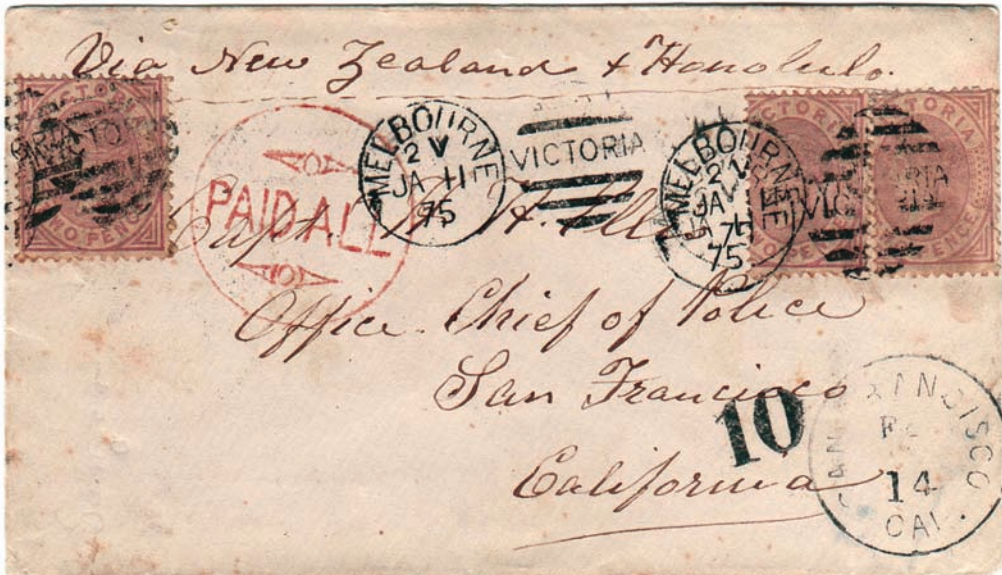 Via New Zealand & Honolulo.
VICTORIA
TWO PENCE
PAID ALL
MELBOURNE
2 V
JA 11
75
VICTORIA
MELBOURNE
JA
75
VICTORIA
TWO PENCE
VICTORIA
PENCE
Capt.
Office Chief of Police
San Francisco
10
California
SAN FRANCISCO
14
CAL.